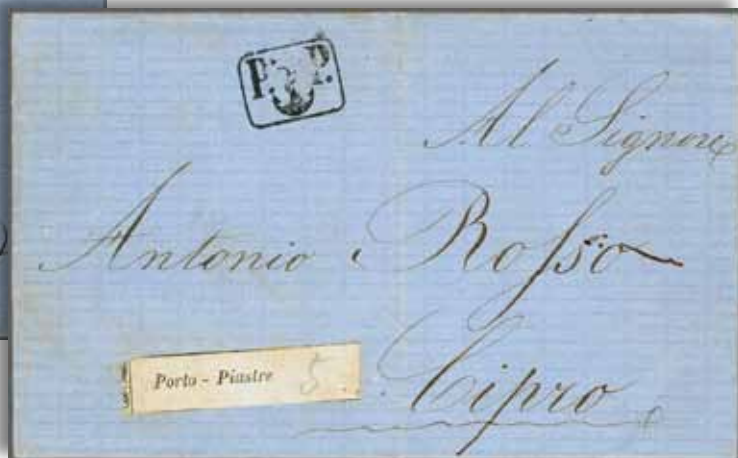 P. P.
Al Signore
Antonio Rosso
Cipro
Porto - Piastre 5